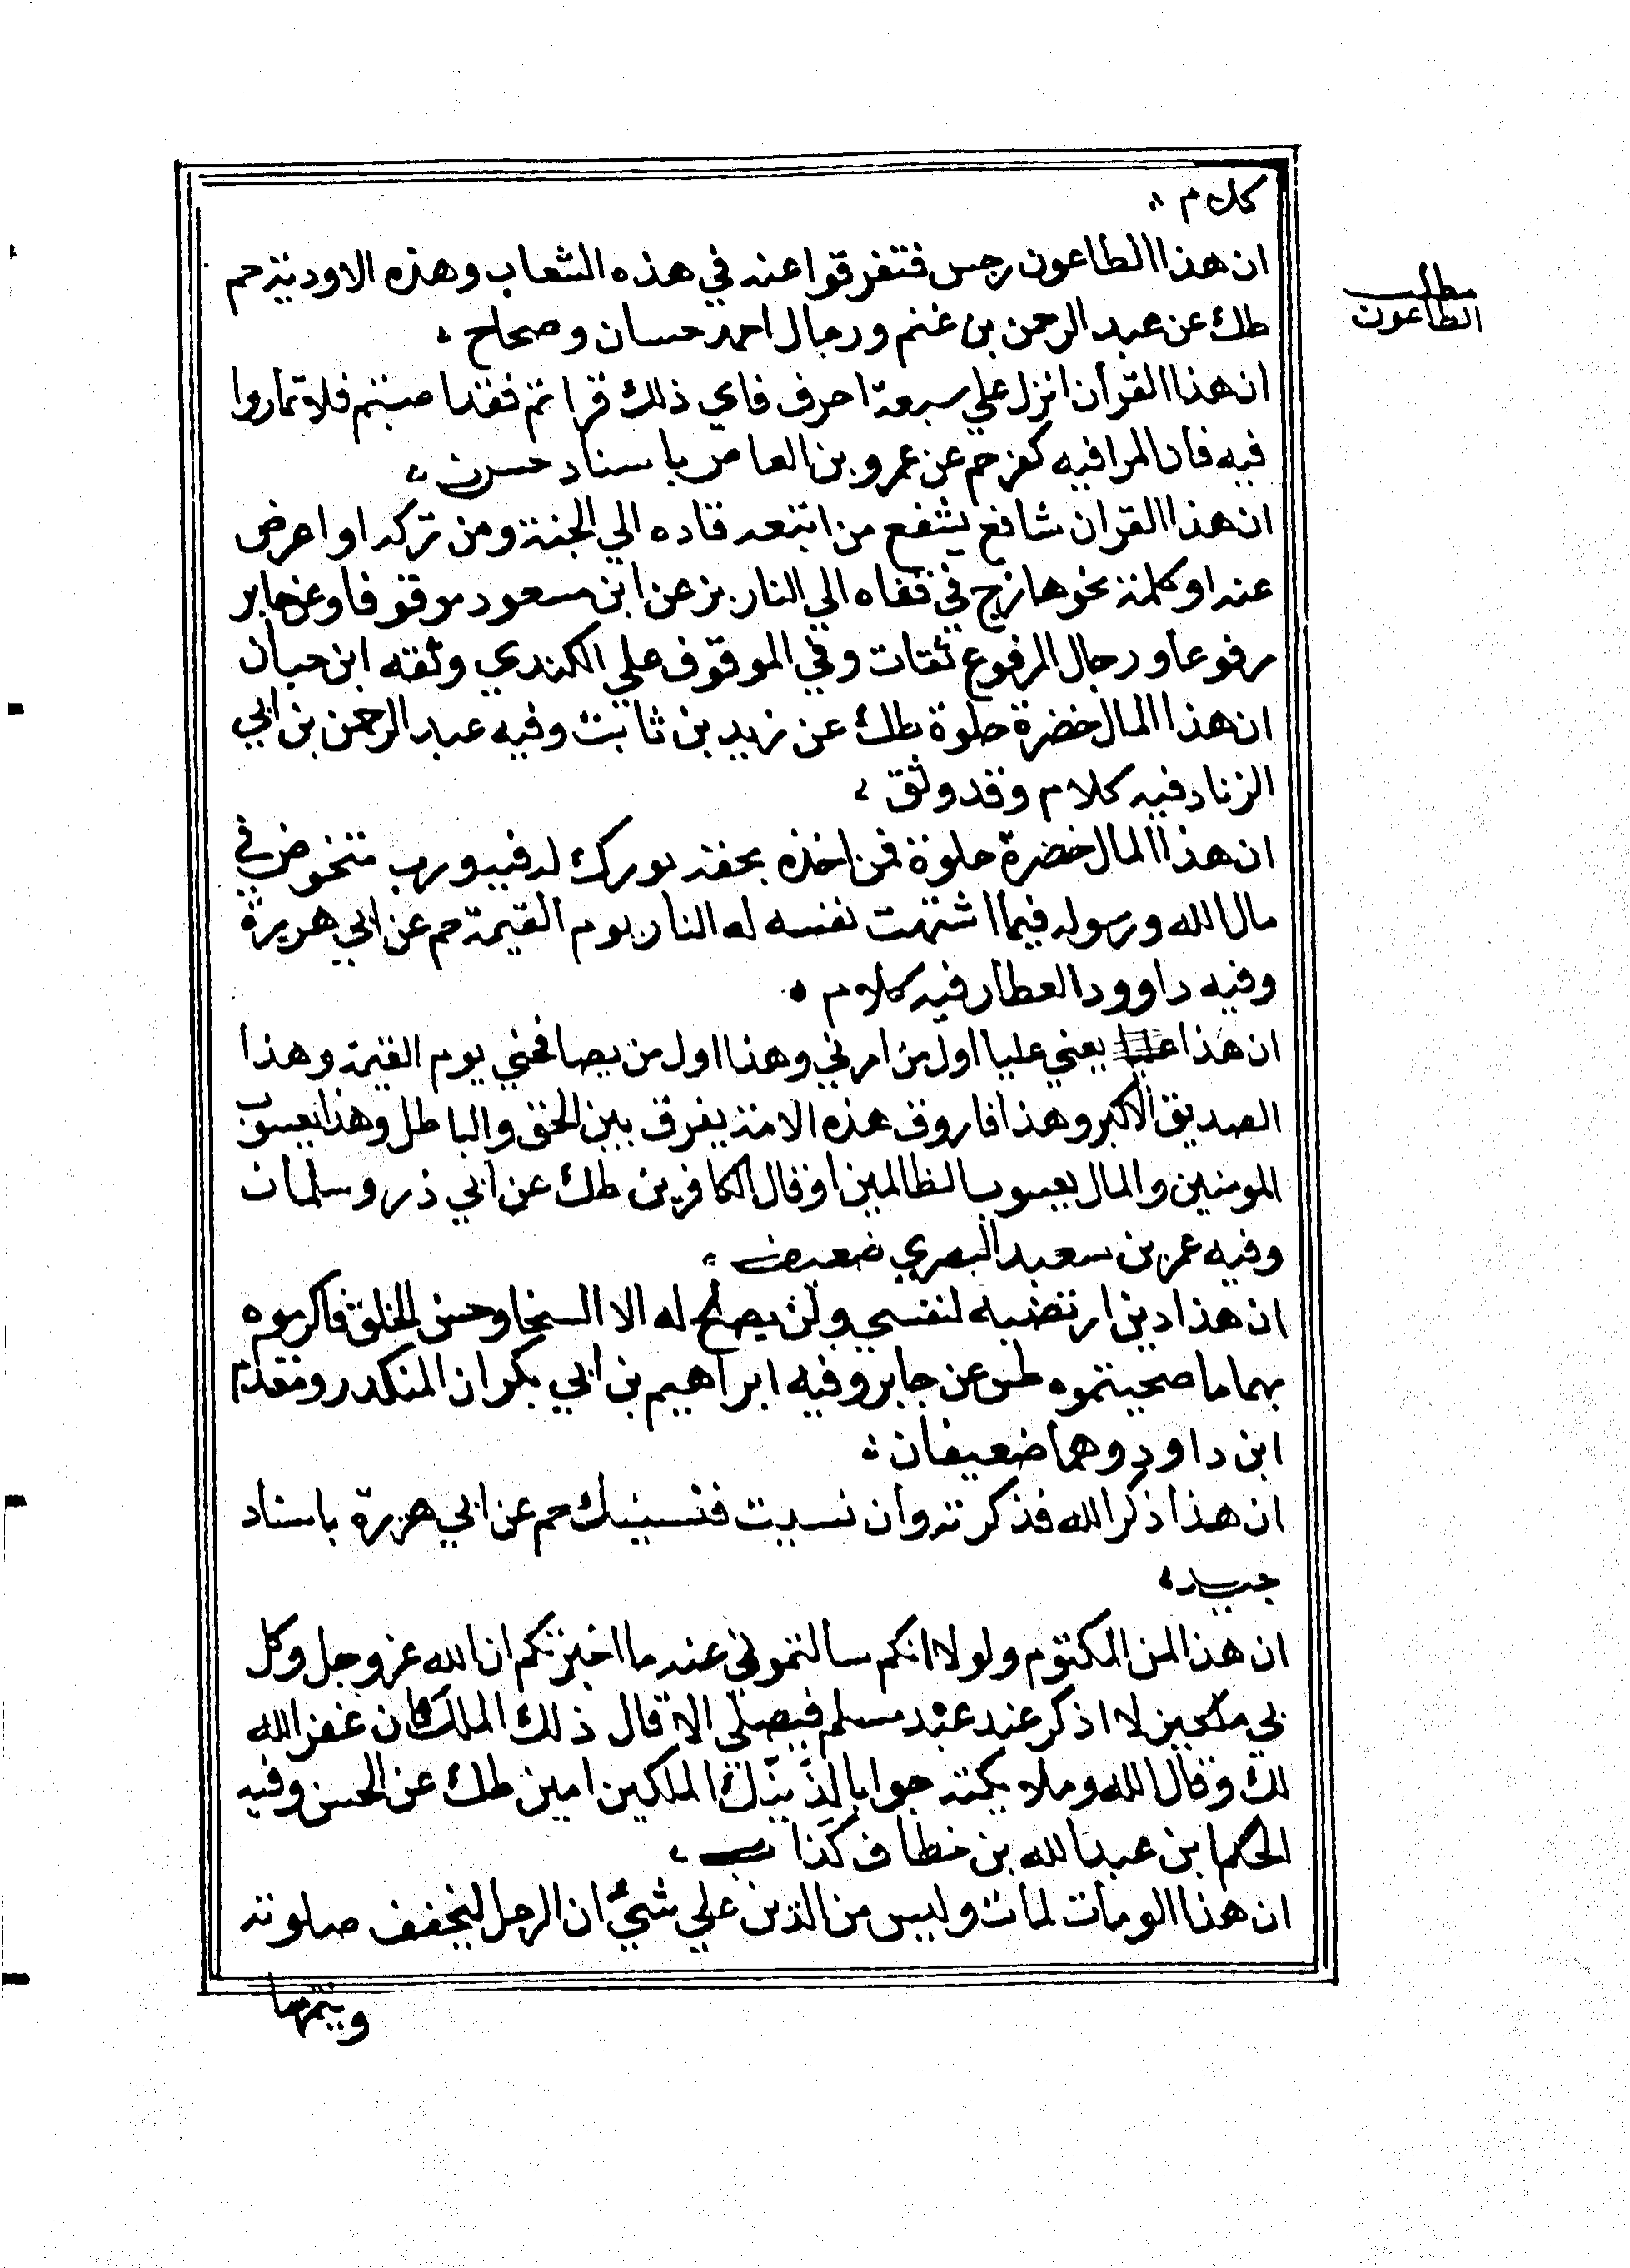 كلام
ان هذا الطاعون رجس فتفرقوا عنه في هذه الشعاب وهذه الاودية حم
مطلب
الطاعون
طك عن عبد الرحمن بن غنم ورجال احمد حسان وصحاح
ان هذا القرآن انزل علي سبعة احرف فاي ذلك قراتم فقد اصبتم فلا تماروا
فيه فان المرا فيه كفر حم عن عمرو بن العاص باسناد حسن
ان هذا القران شافع يشفع من اتبعه قاده الي الجنة ومن تركه او اعرض
عنه او كلمة نحوها زج في قفاه الي النار بز عن ابن مسعود موقوفا وعن جابر
مرفوعا ورجال المرفوع ثقات وفي الموقوف علي الكندي وثقه ابن حبان
ان هذا المال خضرة حلوة طك عن زيد بن ثابت وفيه عبد الرحمن بن ابي
الزناد فيه كلام وقد وثق
ان هذا المال خضرة حلوة فمن اخذه بحقه بورك له فيه ورب متخوض في
مال الله ورسوله فيما اشتهت نفسه له النار يوم القيمة حم عن ابي هريرة
وفيه داوود العطار فيه كلام
ان هذا يعني عليا اول من امن بي وهذا اول من يصافحني يوم القيمة وهذا
الصديق الاكبر وهذا فاروق هذه الامة يفرق بين الحق والباطل وهذا يعسوب
المومنين والمال يعسوب الظالمين او قال الكافرين طك عن ابي ذر وسلمان
وفيه عمر بن سعيد البصري ضعيف
ان هذا دين ارتضيه لنفسي ولن يصلح له الا السخا وحسن الخلق فاكرموه
بهما ما صحبتموه طس عن جابر وفيه ابراهيم بن ابي بكر ان المنكدر ومقدام
ابن داود وهما ضعيفان
ان هذا ذكر الله فذكرته وان نسيت فنسيتك حم عن ابي هريرة باسناد
جيد
ان هذا لمن المكتوم ولولا انكم سالتموني عنه ما اخبرتكم ان الله عز وجل وكل
بي ملكين لا اذكر عند عبد مسلم فيصلي الا قال ذلك الملكان غفر الله
لك وقال الله وملا يكته جوابا لذينك الملكين امين طك عن الحسن وفيه
الحكم ابن عبد الله بن خطاف كذاب
ان هذا لو مات لمات وليس من الدين علي شيء ان الرجل ليخفف صلوته
ويتمها